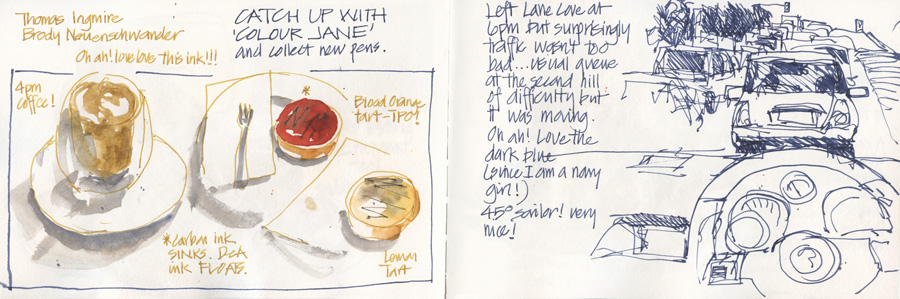 Thomas Ingmire
Brody Neuenschwander
Oh ah! love love this ink!!!
CATCH UP WITH
'COLOUR JANE'
and collect new pens.
4pm
coffee!
*
Blood Orange
tart-TPO!
*carbon ink
SINKS. DcA
ink FLOATS.
Lemon
Tart
Left Lane Cove at
6pm but surprisingly
traffic wasn't too
bad... usual queue
at the second hill
of difficulty but
it was moving.
Oh ah! Love the
dark blue
(since I am a navy
girl!)
45° sailor! very
nice!